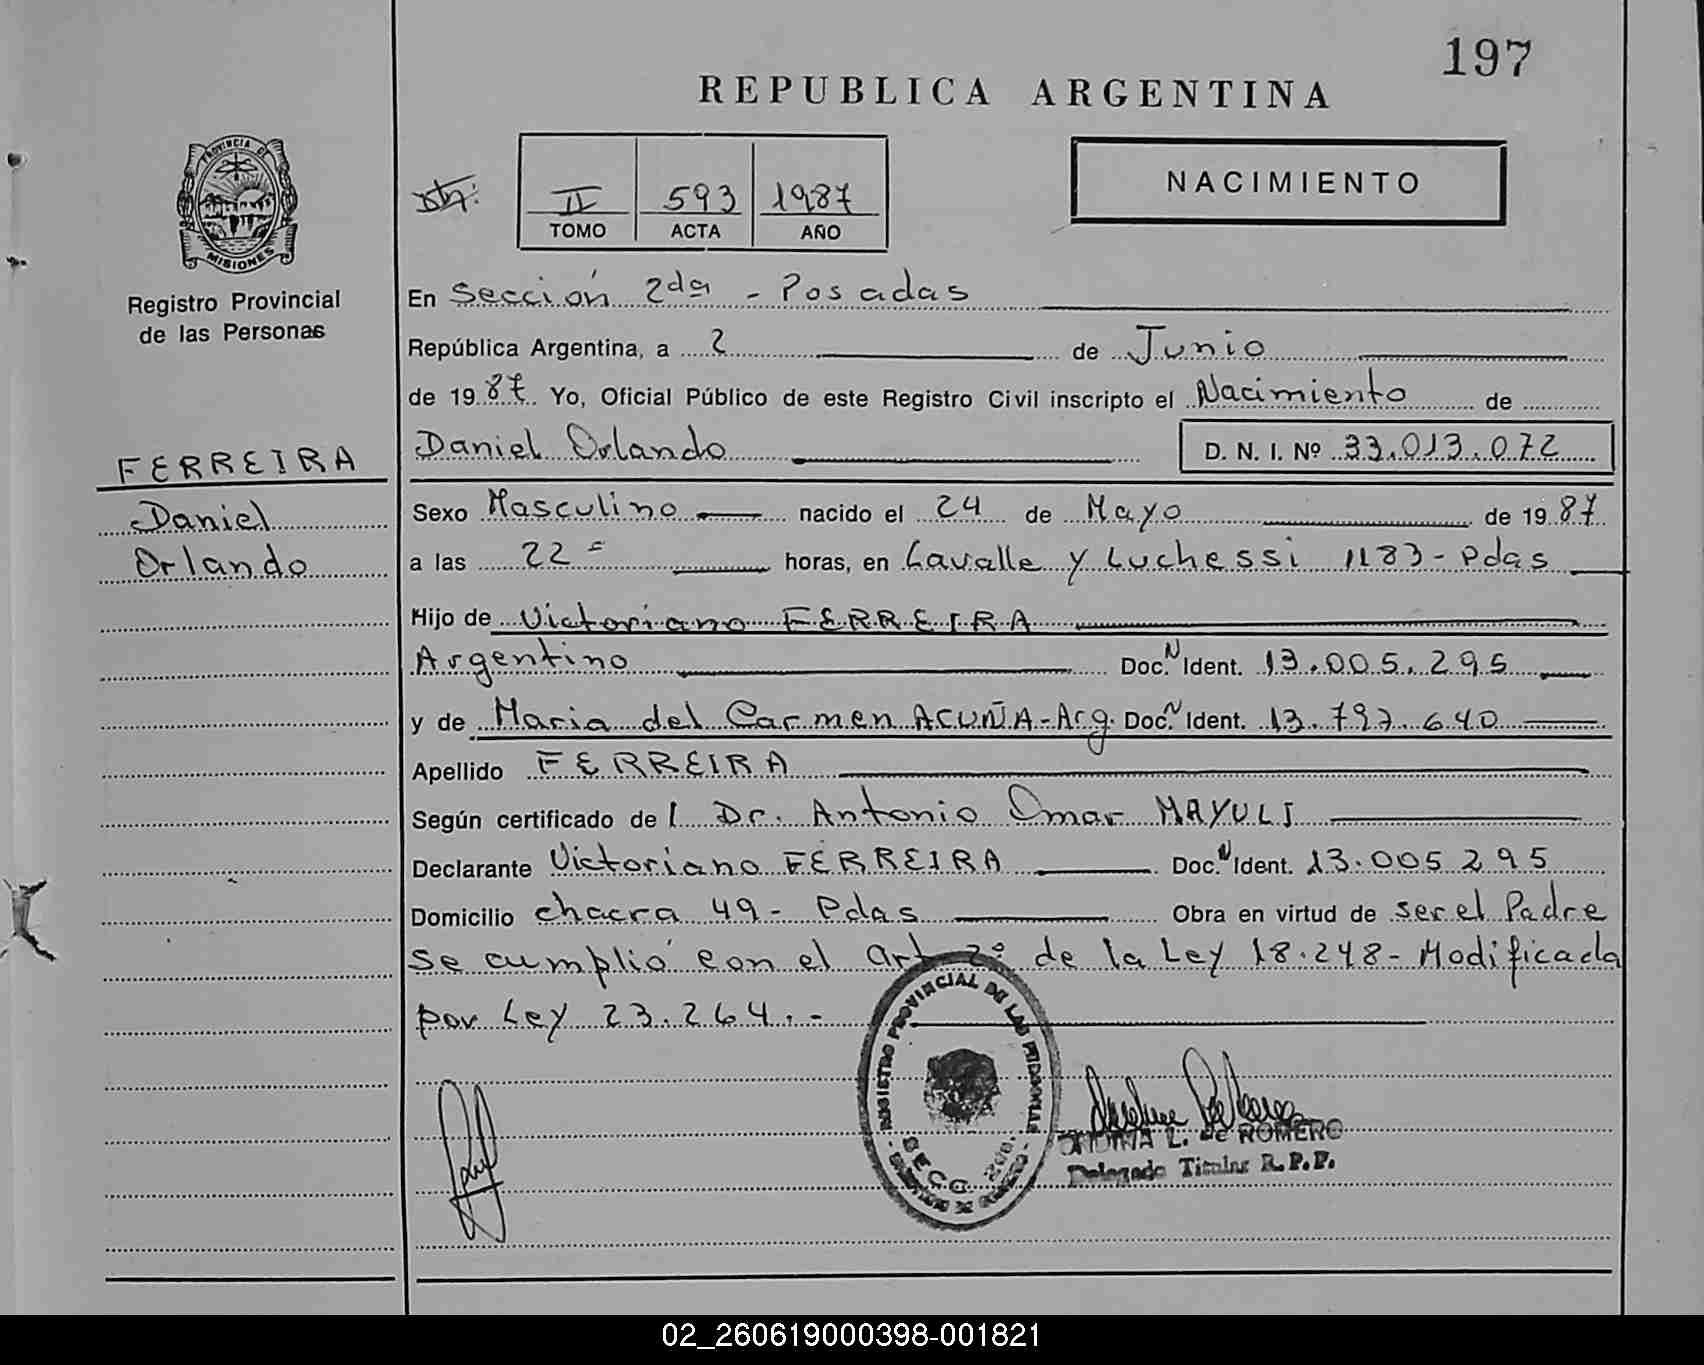 197
REPUBLICA ARGENTINA
PROVINCIA DE
MISIONES
Registro Provincial
de las Personas
II 593 1987
TOMO ACTA AÑO
NACIMIENTO
En Sección 2da - Posadas
República Argentina, a 2 de Junio
de 1987 Yo, Oficial Público de este Registro Civil inscripto el Nacimiento de
Daniel Orlando D. N. I. Nº 33.013.072
FERREIRA
Daniel
Orlando
Sexo Masculino nacido el 24 de Mayo de 1987
a las 22 = horas, en Lavalle y Luchessi 1183 - Pdas
Hijo de Victoriano FERREIRA
Argentino Doc. N Ident. 13.005.295
y de Maria del Carmen ACUÑA - Arg. Doc. N Ident. 13.797.640
Apellido FERREIRA
Según certificado de l Dr. Antonio Omar MAYULI
Declarante Victoriano FERREIRA Doc. N Ident. 13.005295
Domicilio chacra 49 - Pdas Obra en virtud de ser el Padre
se cumplió con el art 2º de la Ley 18.248 - Modificada
por Ley 23.264.-
REGISTRO PROVINCIAL DE LAS PERSONAS
SECC. 2da.
L. de ROMERO
Delegado Titular R.P.P.
02_260619000398-001821